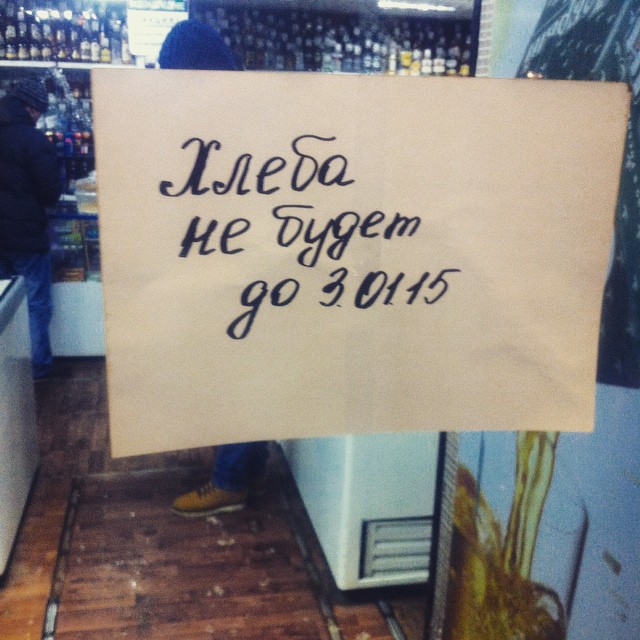 Хлеба
не будет
до 3.01.15